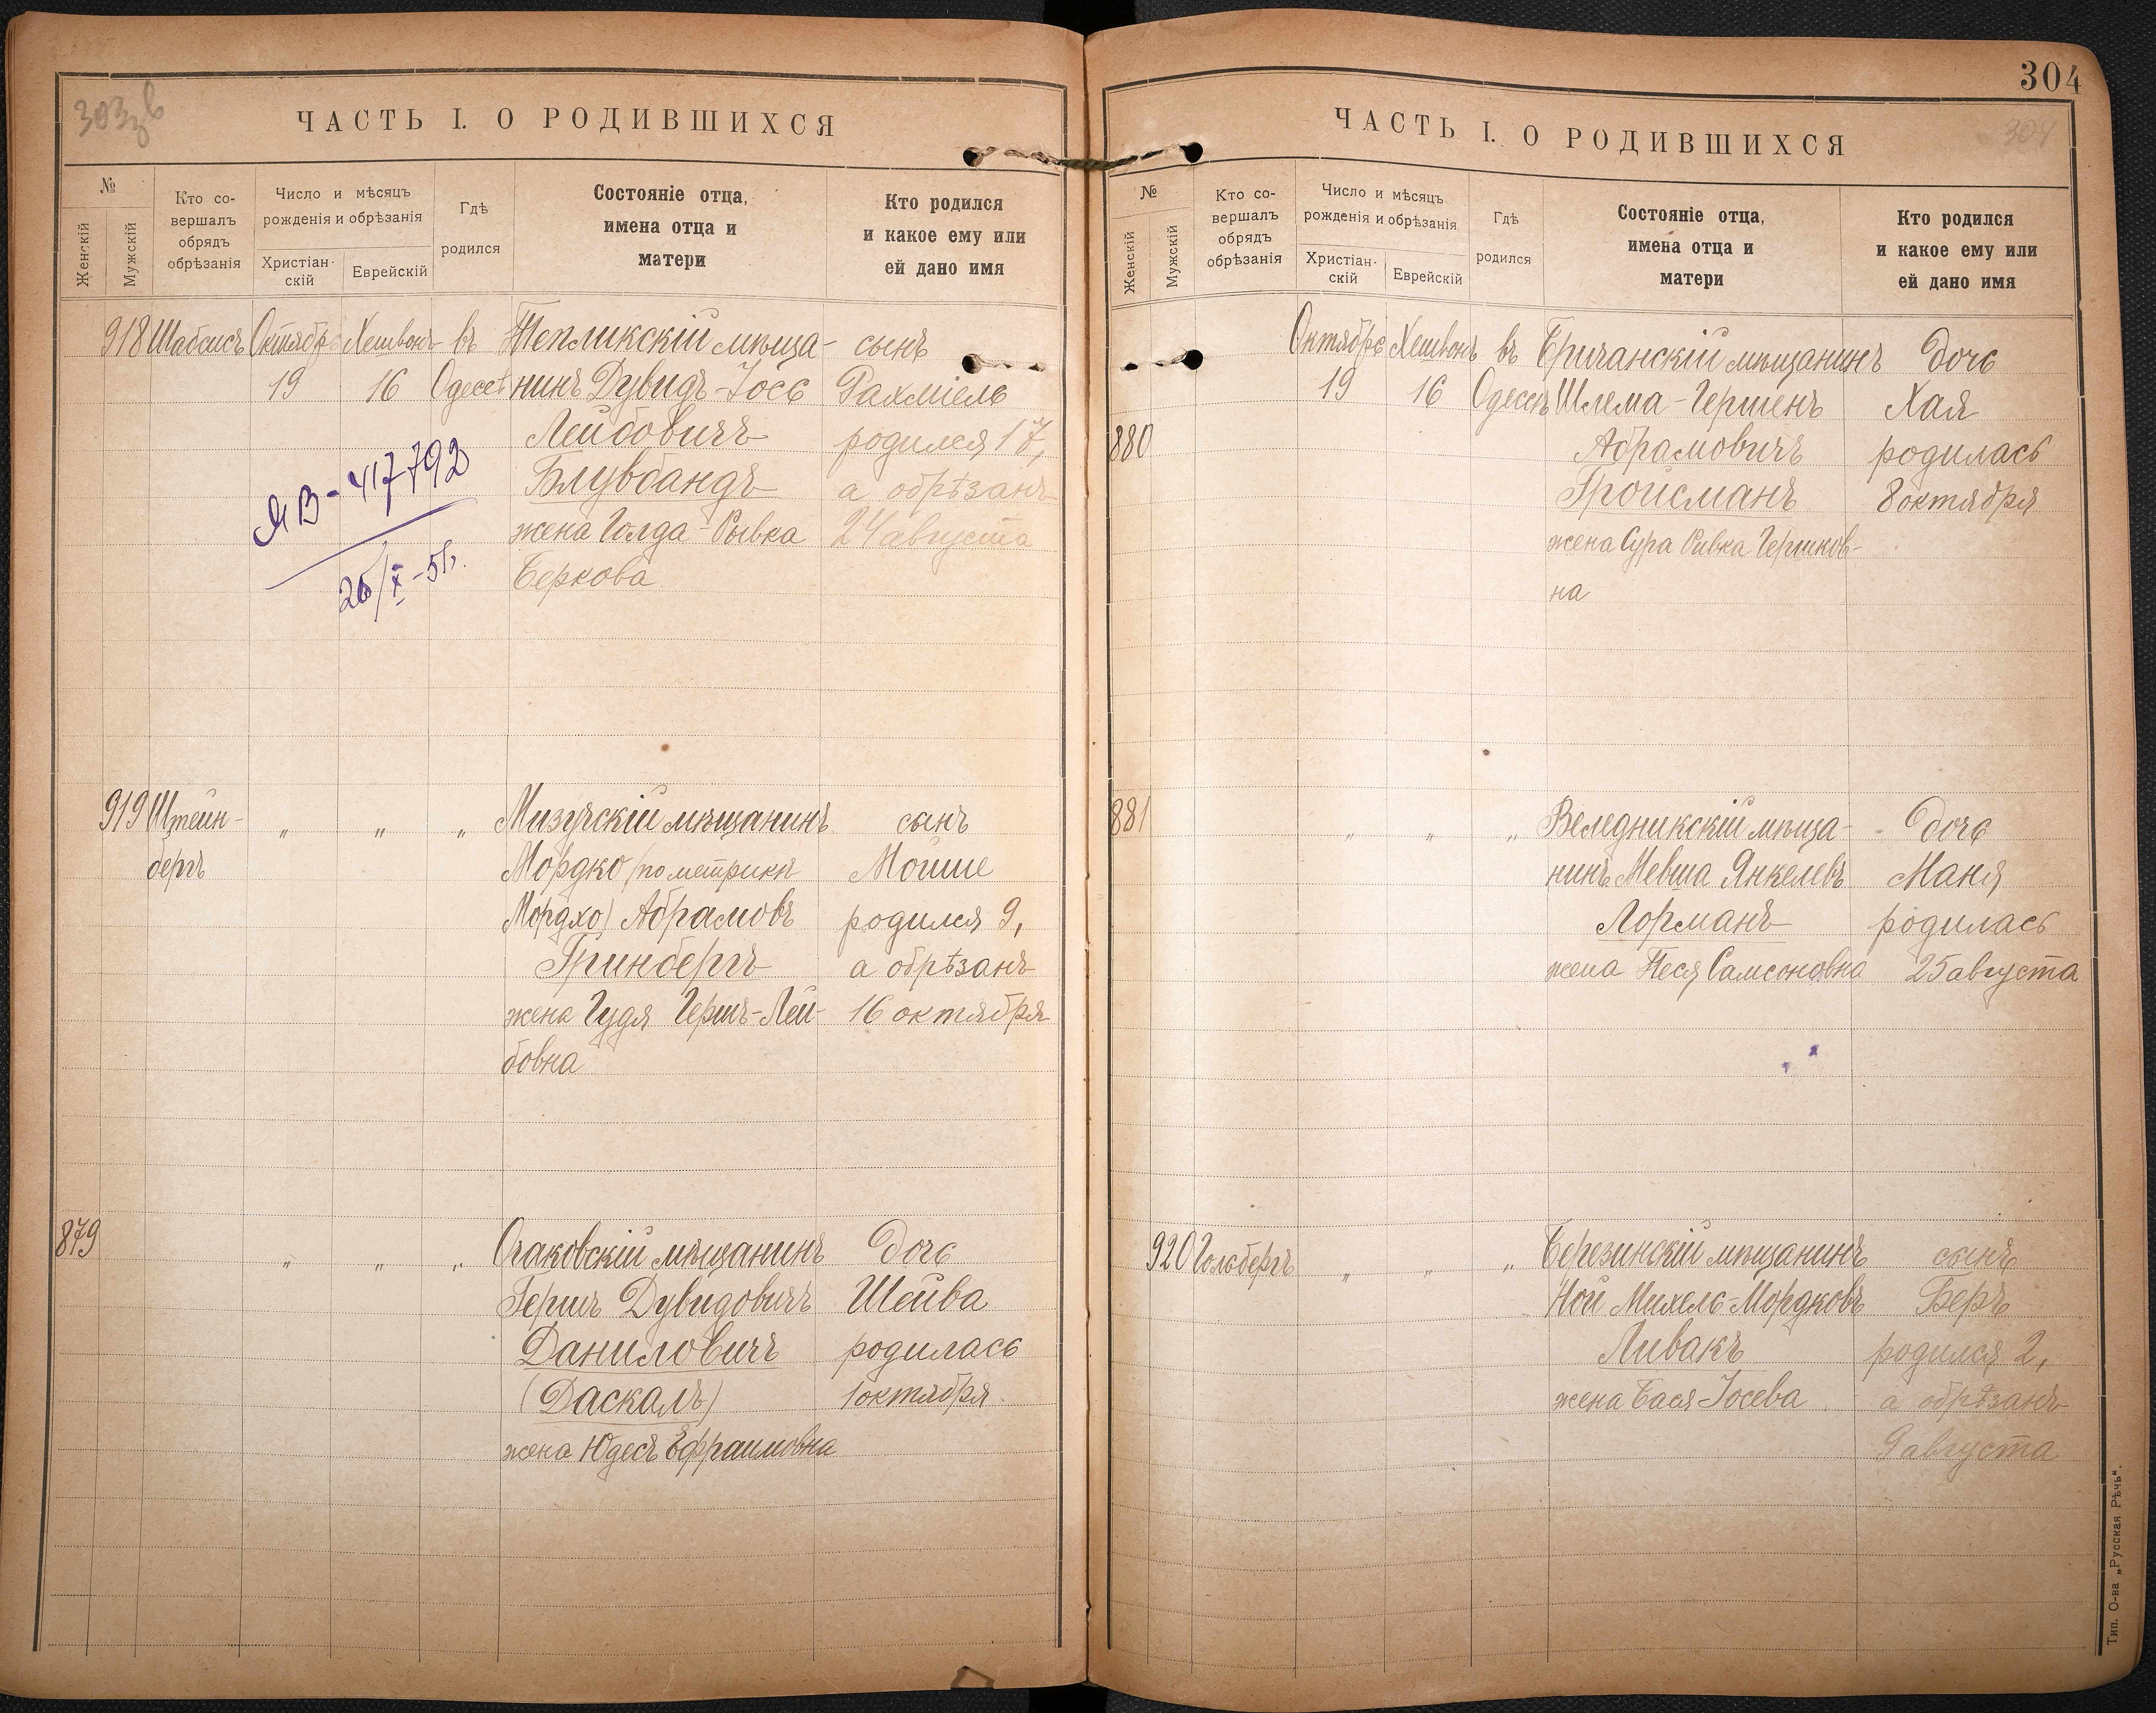 303 зв
ЧАСТЬ I. О РОДИВШИХСЯ
№
Женскій
Мужскій
Кто со-
вершалъ
обрядъ
обрѣзанія
Число и мѣсяцъ
рожденія и обрѣзанія
Христіан-
скій
Еврейскій
Гдѣ
родился
Состояніе отца,
имена отца и
матери
Кто родился
и какое ему или
ей дано имя
918 Шабсисъ Октябрь Хешвонъ въ Тепликскій мѣща- сынъ
19 16 Одессѣ нинъ Дувидъ-Іось Рахміель
Лейбовичъ родился 17,
Блувбандъ а обрѣзанъ
жена Голда-Рывка 24 августа
Беркова
ЯВ-417792
26/X-51г.
919 Штейн- „ „ „ Мизучскій мѣщанинъ сынъ
бергъ Мордко (по метрикѣ Мойше
Мордхо) Абрамовъ родился 9,
Гринбергъ а обрѣзанъ
жена Гудя Гершъ-Лей- 16 октября
бовна
879 „ „ „ Очаковскій мѣщанинъ дочь
Гершъ Дувидовичъ Шейва
Даниловичъ родилась
(Даскалъ) 1 октября
жена Юдесъ Ефраимовна
304
304
ЧАСТЬ I. О РОДИВШИХСЯ
№
Женскій
Мужскій
Кто со-
вершалъ
обрядъ
обрѣзанія
Число и мѣсяцъ
рожденія и обрѣзанія
Христіан-
скій
Еврейскій
Гдѣ
родился
Состояніе отца,
имена отца и
матери
Кто родился
и какое ему или
ей дано имя
Октябрь Хешвонъ въ Бричанскій мѣщанинъ дочь
19 16 Одессѣ Шлема-Гершенъ Хая
880 Абрамовичъ родилась
Гройсманъ 8 октября
жена Сура Ривка Гершков-
на
881 „ „ „ Веледникскій мѣща- дочь
нинъ Мевша Янкелевъ Маня
Лорманъ родилась
жена Песя Самсоновна 25 августа
920 Гольбергъ „ „ „ Березинскій мѣщанинъ сынъ
Ной Михель-Мордковъ Беръ
Ливакъ родился 2,
жена Бася-Іосева а обрѣзанъ
9 августа
Тип. О-ва „Русская Рѣчь“.